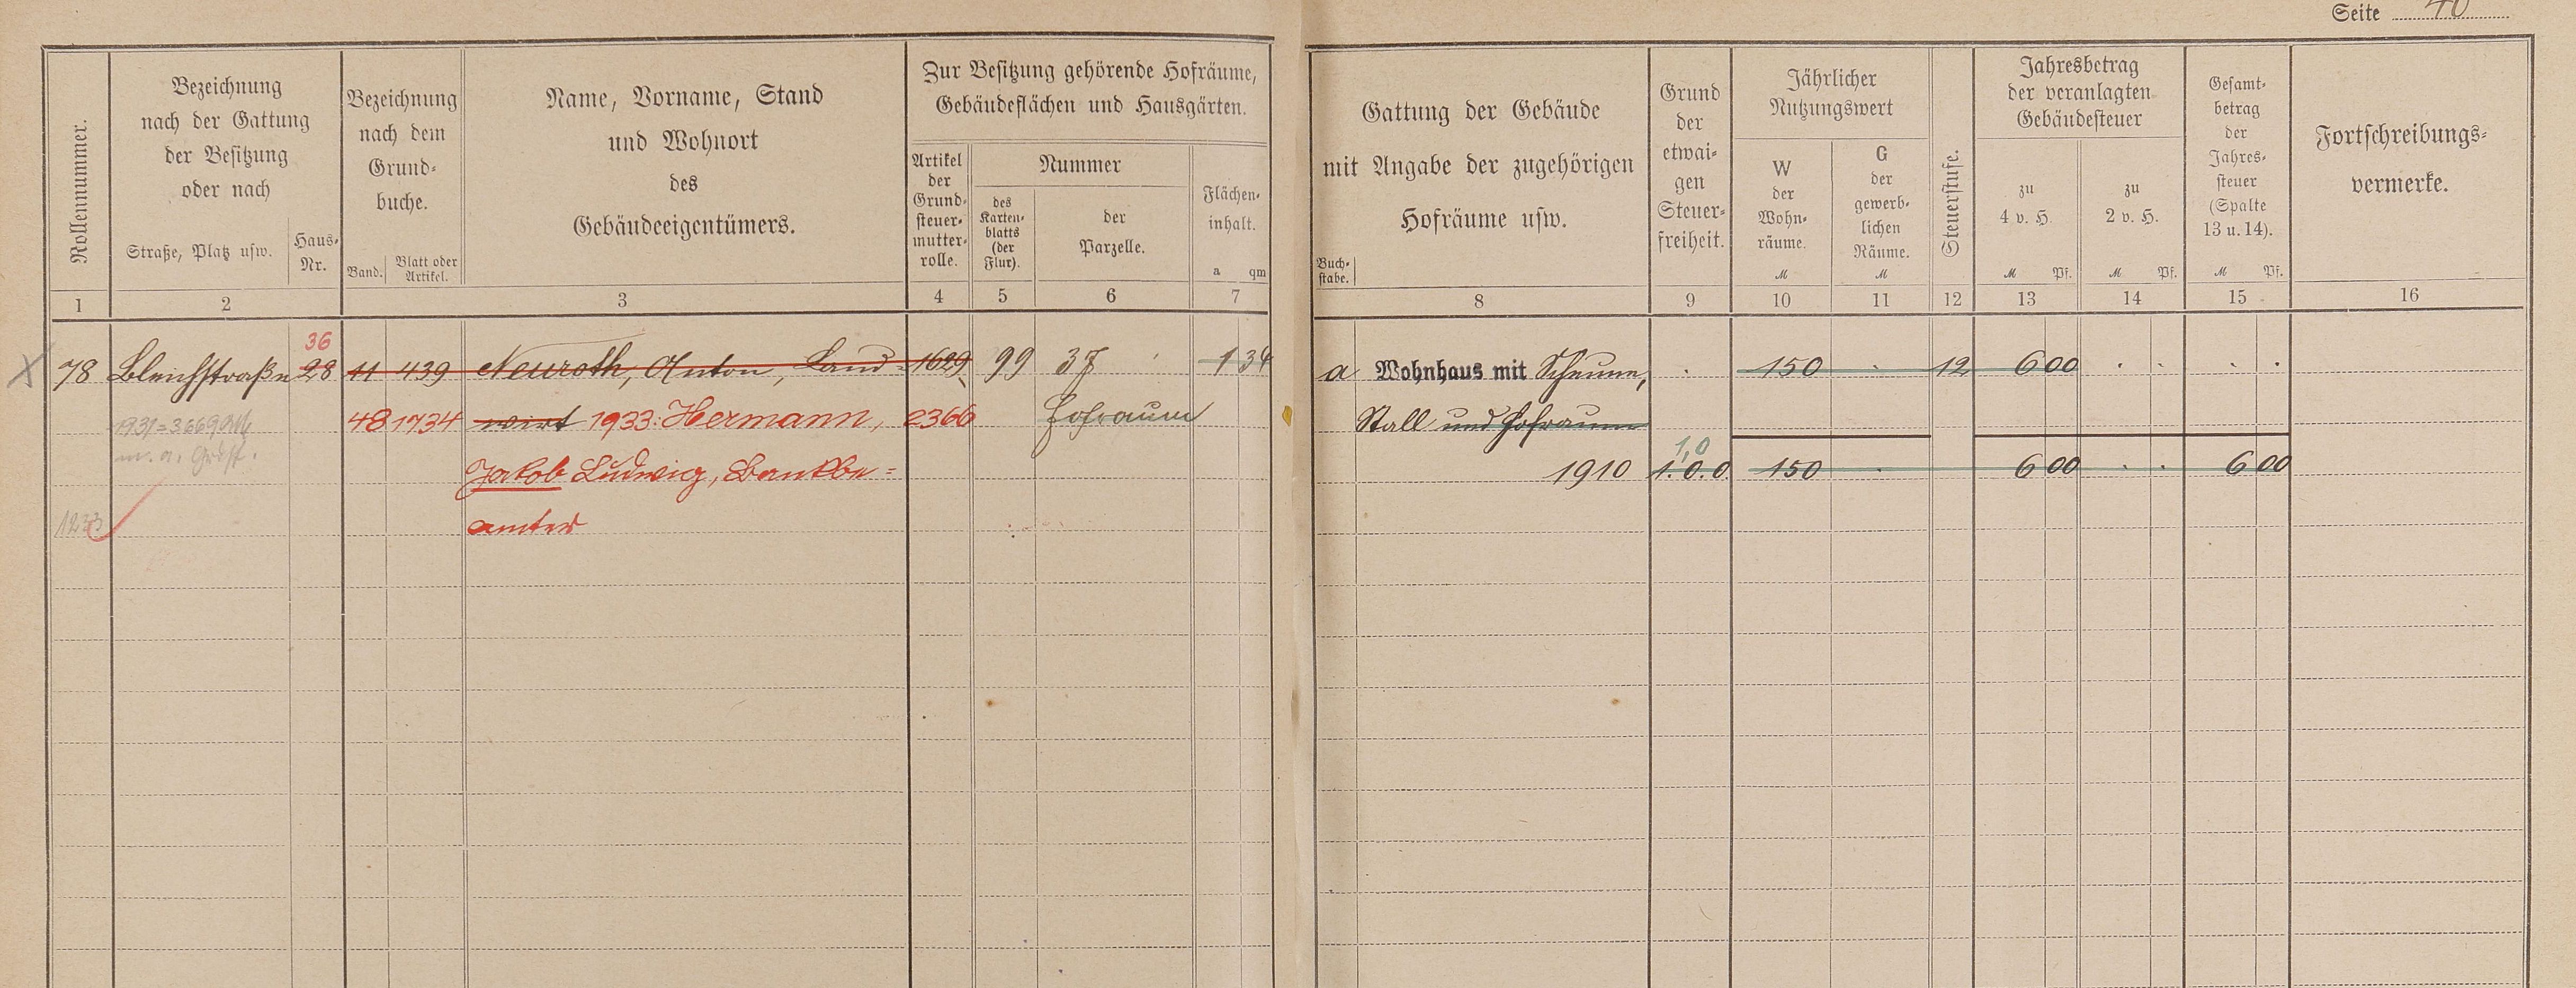 Seite 40
Rollennummer.
Bezeichnung
nach der Gattung
der Besitzung
oder nach
Straße, Platz usw.
Haus-
Nr.
Bezeichnung
nach dem
Grund-
buche.
Band.
Blatt oder
Artikel.
Name, Vorname, Stand
und Wohnort
des
Gebäudeeigentümers.
Zur Besitzung gehörende Hofräume,
Gebäudeflächen und Hausgärten.
Artikel
der
Grund-
steuer-
mutter-
rolle.
Nummer
des
Karten-
blatts
(der
Flur).
der
Parzelle.
Flächen-
inhalt.
a qm
Gattung der Gebäude
mit Angabe der zugehörigen
Hofräume usw.
Buch-
stabe.
Grund
der
etwai-
gen
Steuer-
freiheit.
Jährlicher
Nutzungswert
W
der
Wohn-
räume.
M
G
der
gewerb-
lichen
Räume.
M
Steuerstufe.
Jahresbetrag
der veranlagten
Gebäudesteuer
zu
4 v. H.
M Pf.
zu
2 v. H.
M Pf.
Gesamt-
betrag
der
Jahres-
steuer
(Spalte
13 u. 14).
M Pf.
Fortschreibungs-
vermerke.
1 2 3 4 5 6 7 8 9 10 11 12 13 14 15 16
36
78 Bleichstraße 28 11 439 Neuroth, Anton, Land- 1629 99 37 1 34 a Wohnhaus mit Scheune, 150 12 6 00
48 1734 wirt 1933: Hermann, 2366 Hofraum Stall und Hofraum
Jakob Ludwig, Bankbe=
1,0
1910 1.0.0 150 6 00 6 00
amter